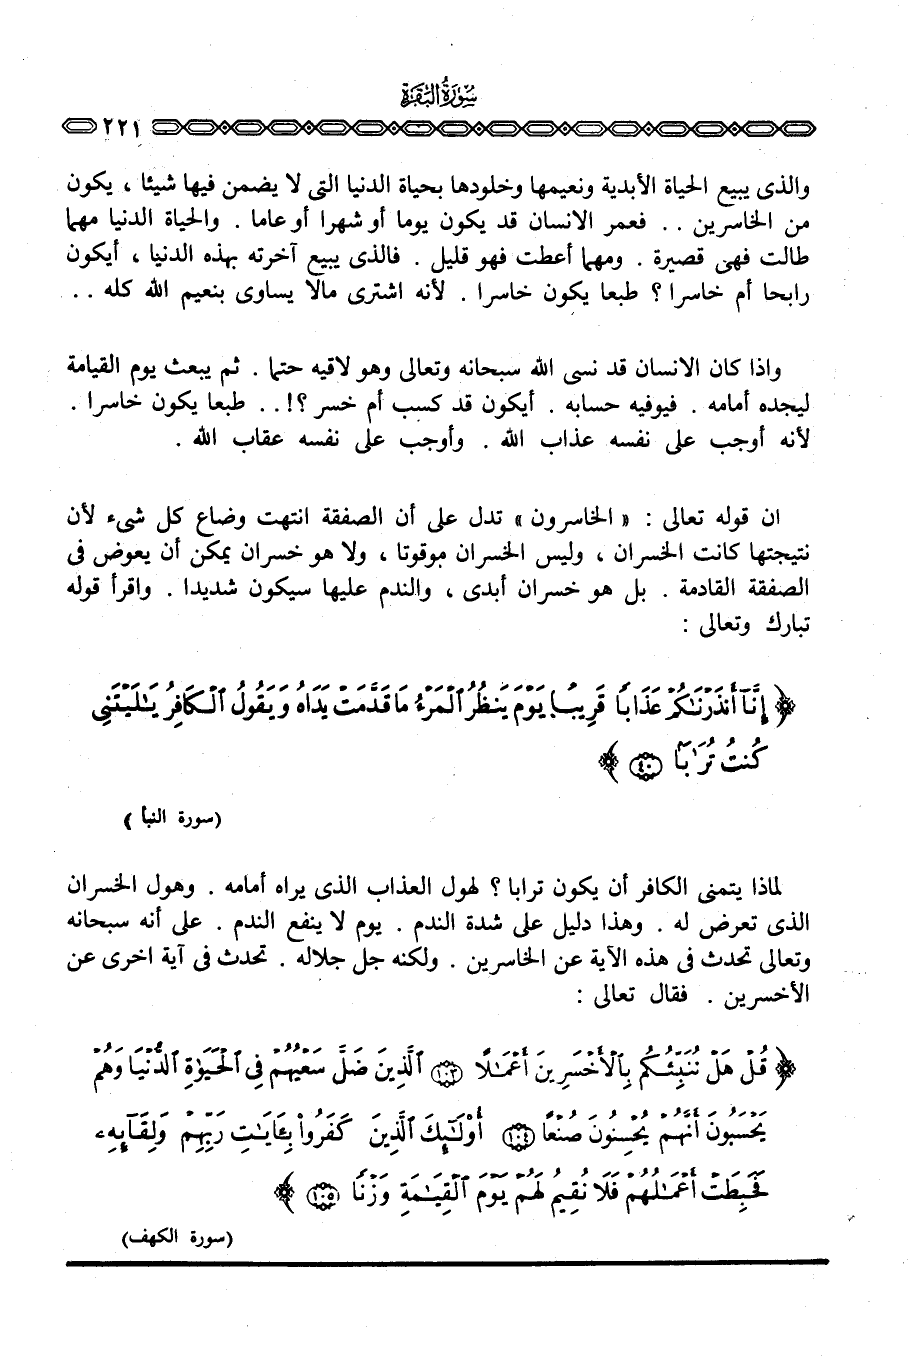 سورة البقرة
٢٢١
والذى يبيع الحياة الأبدية ونعيمها وخلودها بحياة الدنيا التى لا يضمن فيها شيئا ، يكون
من الخاسرين . . فعمر الانسان قد يكون يوما أو شهرا أو عاما . والحياة الدنيا مهما
طالت فهى قصيرة . ومهما أعطت فهو قليل . فالذى يبيع آخرته بهذه الدنيا ، أيكون
رابحا أم خاسرا ؟ طبعا يكون خاسرا . لأنه اشترى مالا يساوى بنعيم الله كله . .
واذا كان الانسان قد نسى الله سبحانه وتعالى وهو لاقيه حتما . ثم يبعث يوم القيامة
ليجده أمامه . فيوفيه حسابه . أيكون قد كسب أم خسر ؟! . . طبعا يكون خاسرا .
لأنه أوجب على نفسه عذاب الله . وأوجب على نفسه عقاب الله .
ان قوله تعالى : « الخاسرون » تدل على أن الصفقة انتهت وضاع كل شىء لأن
نتيجتها كانت الخسران ، وليس الخسران موقوتا ، ولا هو خسران يمكن أن يعوض فى
الصفقة القادمة . بل هو خسران أبدى ، والندم عليها سيكون شديدا . واقرأ قوله
تبارك وتعالى :
﴿ إِنَّآ أَنذَرْنَٰكُمْ عَذَابًا قَرِيبًا يَوْمَ يَنظُرُ ٱلْمَرْءُ مَا قَدَّمَتْ يَدَاهُ وَيَقُولُ ٱلْكَافِرُ يَٰلَيْتَنِى
كُنتُ تُرَٰبًۢا ٤٠ ﴾
(سورة النبأ )
لماذا يتمنى الكافر أن يكون ترابا ؟ لهول العذاب الذى يراه أمامه . وهول الخسران
الذى تعرض له . وهذا دليل على شدة الندم . يوم لا ينفع الندم . على أنه سبحانه
وتعالى تحدث فى هذه الآية عن الخاسرين . ولكنه جل جلاله . تحدث فى آية اخرى عن
الأخسرين . فقال تعالى :
﴿ قُلْ هَلْ نُنَبِّئُكُم بِٱلْأَخْسَرِينَ أَعْمَٰلًا ١٠٣ ٱلَّذِينَ ضَلَّ سَعْيُهُمْ فِى ٱلْحَيَوٰةِ ٱلدُّنْيَا وَهُمْ
يَحْسَبُونَ أَنَّهُمْ يُحْسِنُونَ صُنْعًا ١٠٤ أُو۟لَٰٓئِكَ ٱلَّذِينَ كَفَرُوا۟ بِـَٔايَٰتِ رَبِّهِمْ وَلِقَآئِهِۦ
فَحَبِطَتْ أَعْمَٰلُهُمْ فَلَا نُقِيمُ لَهُمْ يَوْمَ ٱلْقِيَٰمَةِ وَزْنًا ١٠٥ ﴾
(سورة الكهف)